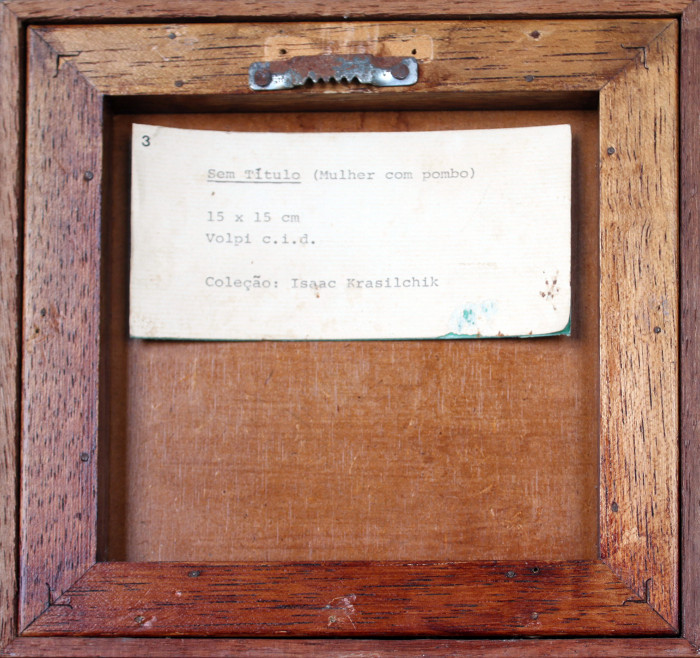 3
Sem Título (Mulher com pombo)
15 x 15 cm
Volpi c.i.d.
Coleção: Isaac Krasilchik